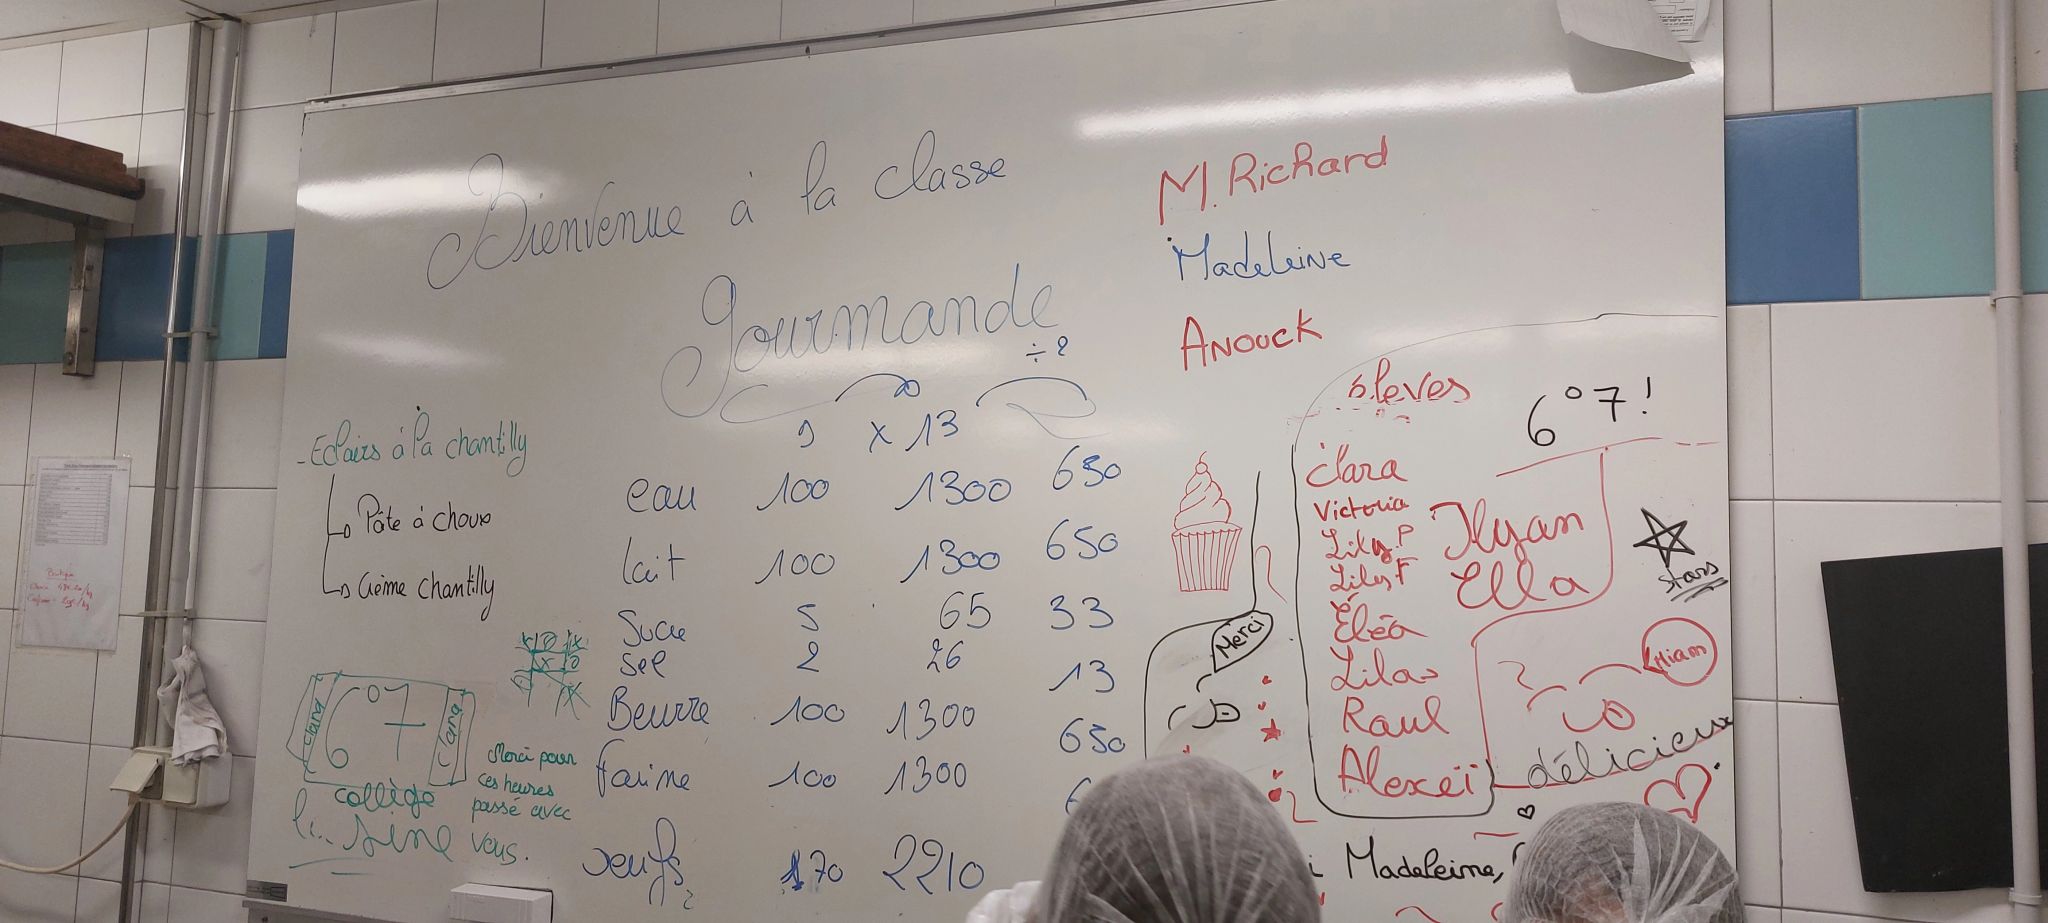 Bienvenue à la classe
Gourmande
M. Richard
Madeleine
Anouck
- Eclairs à la chantilly
↳ Pâte à choux
↳ Crème chantilly
÷ 2
x 13
eau 100 1300 650
lait 100 1300 650
Sucre 5 65 33
Sel 2 26 13
Beurre 100 1300 650
farine 100 1300
oeufs 170 2210
élèves
6°7!
Clara
Victoria
Lily.P
Lily.F
Éléa
Lilas
Raul
Alexeï
Ilyan
Ella
Stars
Merci
Miam
délicieux
Madeleine,
Clara
6°7
Clara
collège
Merci pour
ces heures
passé avec
vous.